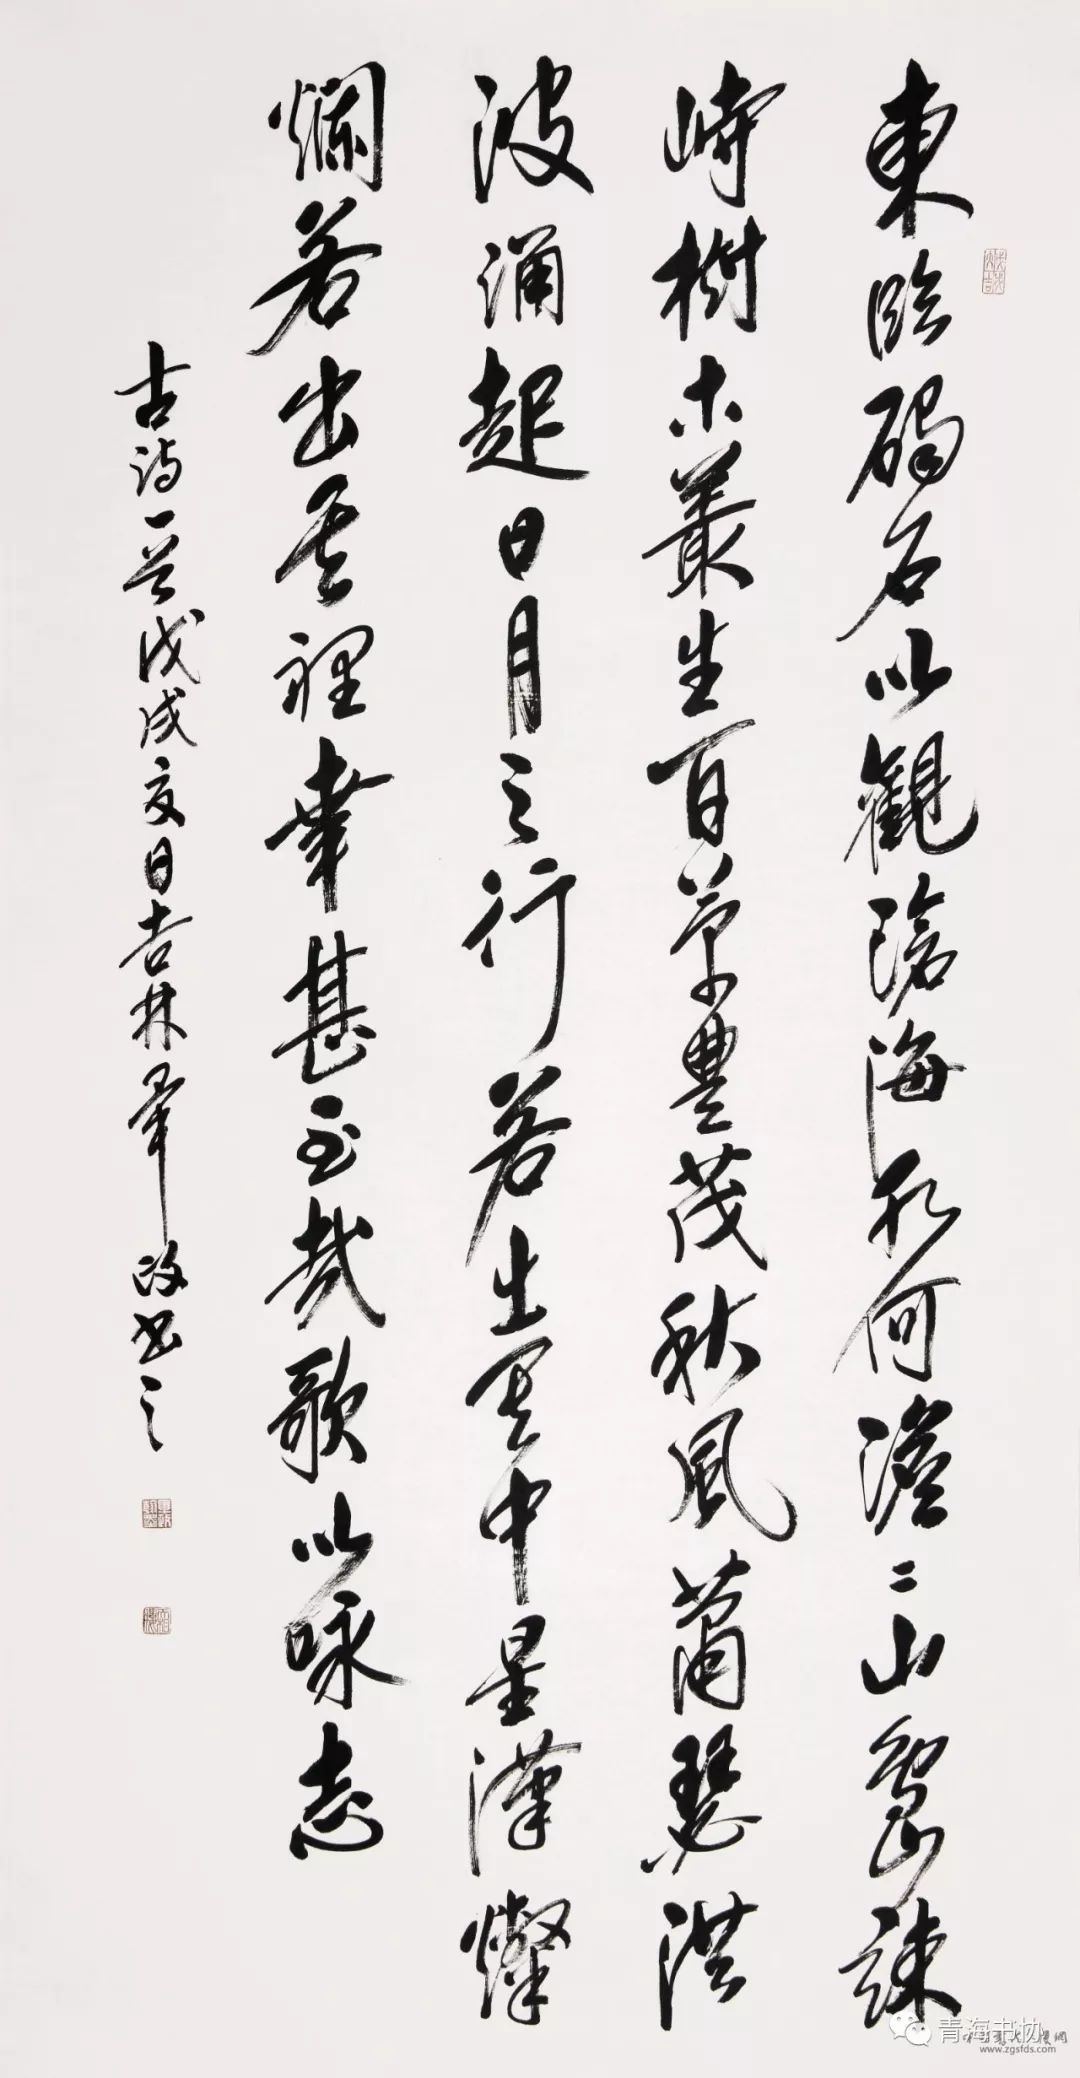 東臨碣石以觀滄海水何澹〻山島竦
峙樹木叢生百草豐茂秋風蕭瑟洪
波涌起日月之行若出其中星漢燦
爛若出其裡幸甚至哉歌以咏志
古詩一首戊戌夏日吉林書之
青海书协
www.zgsfds.com